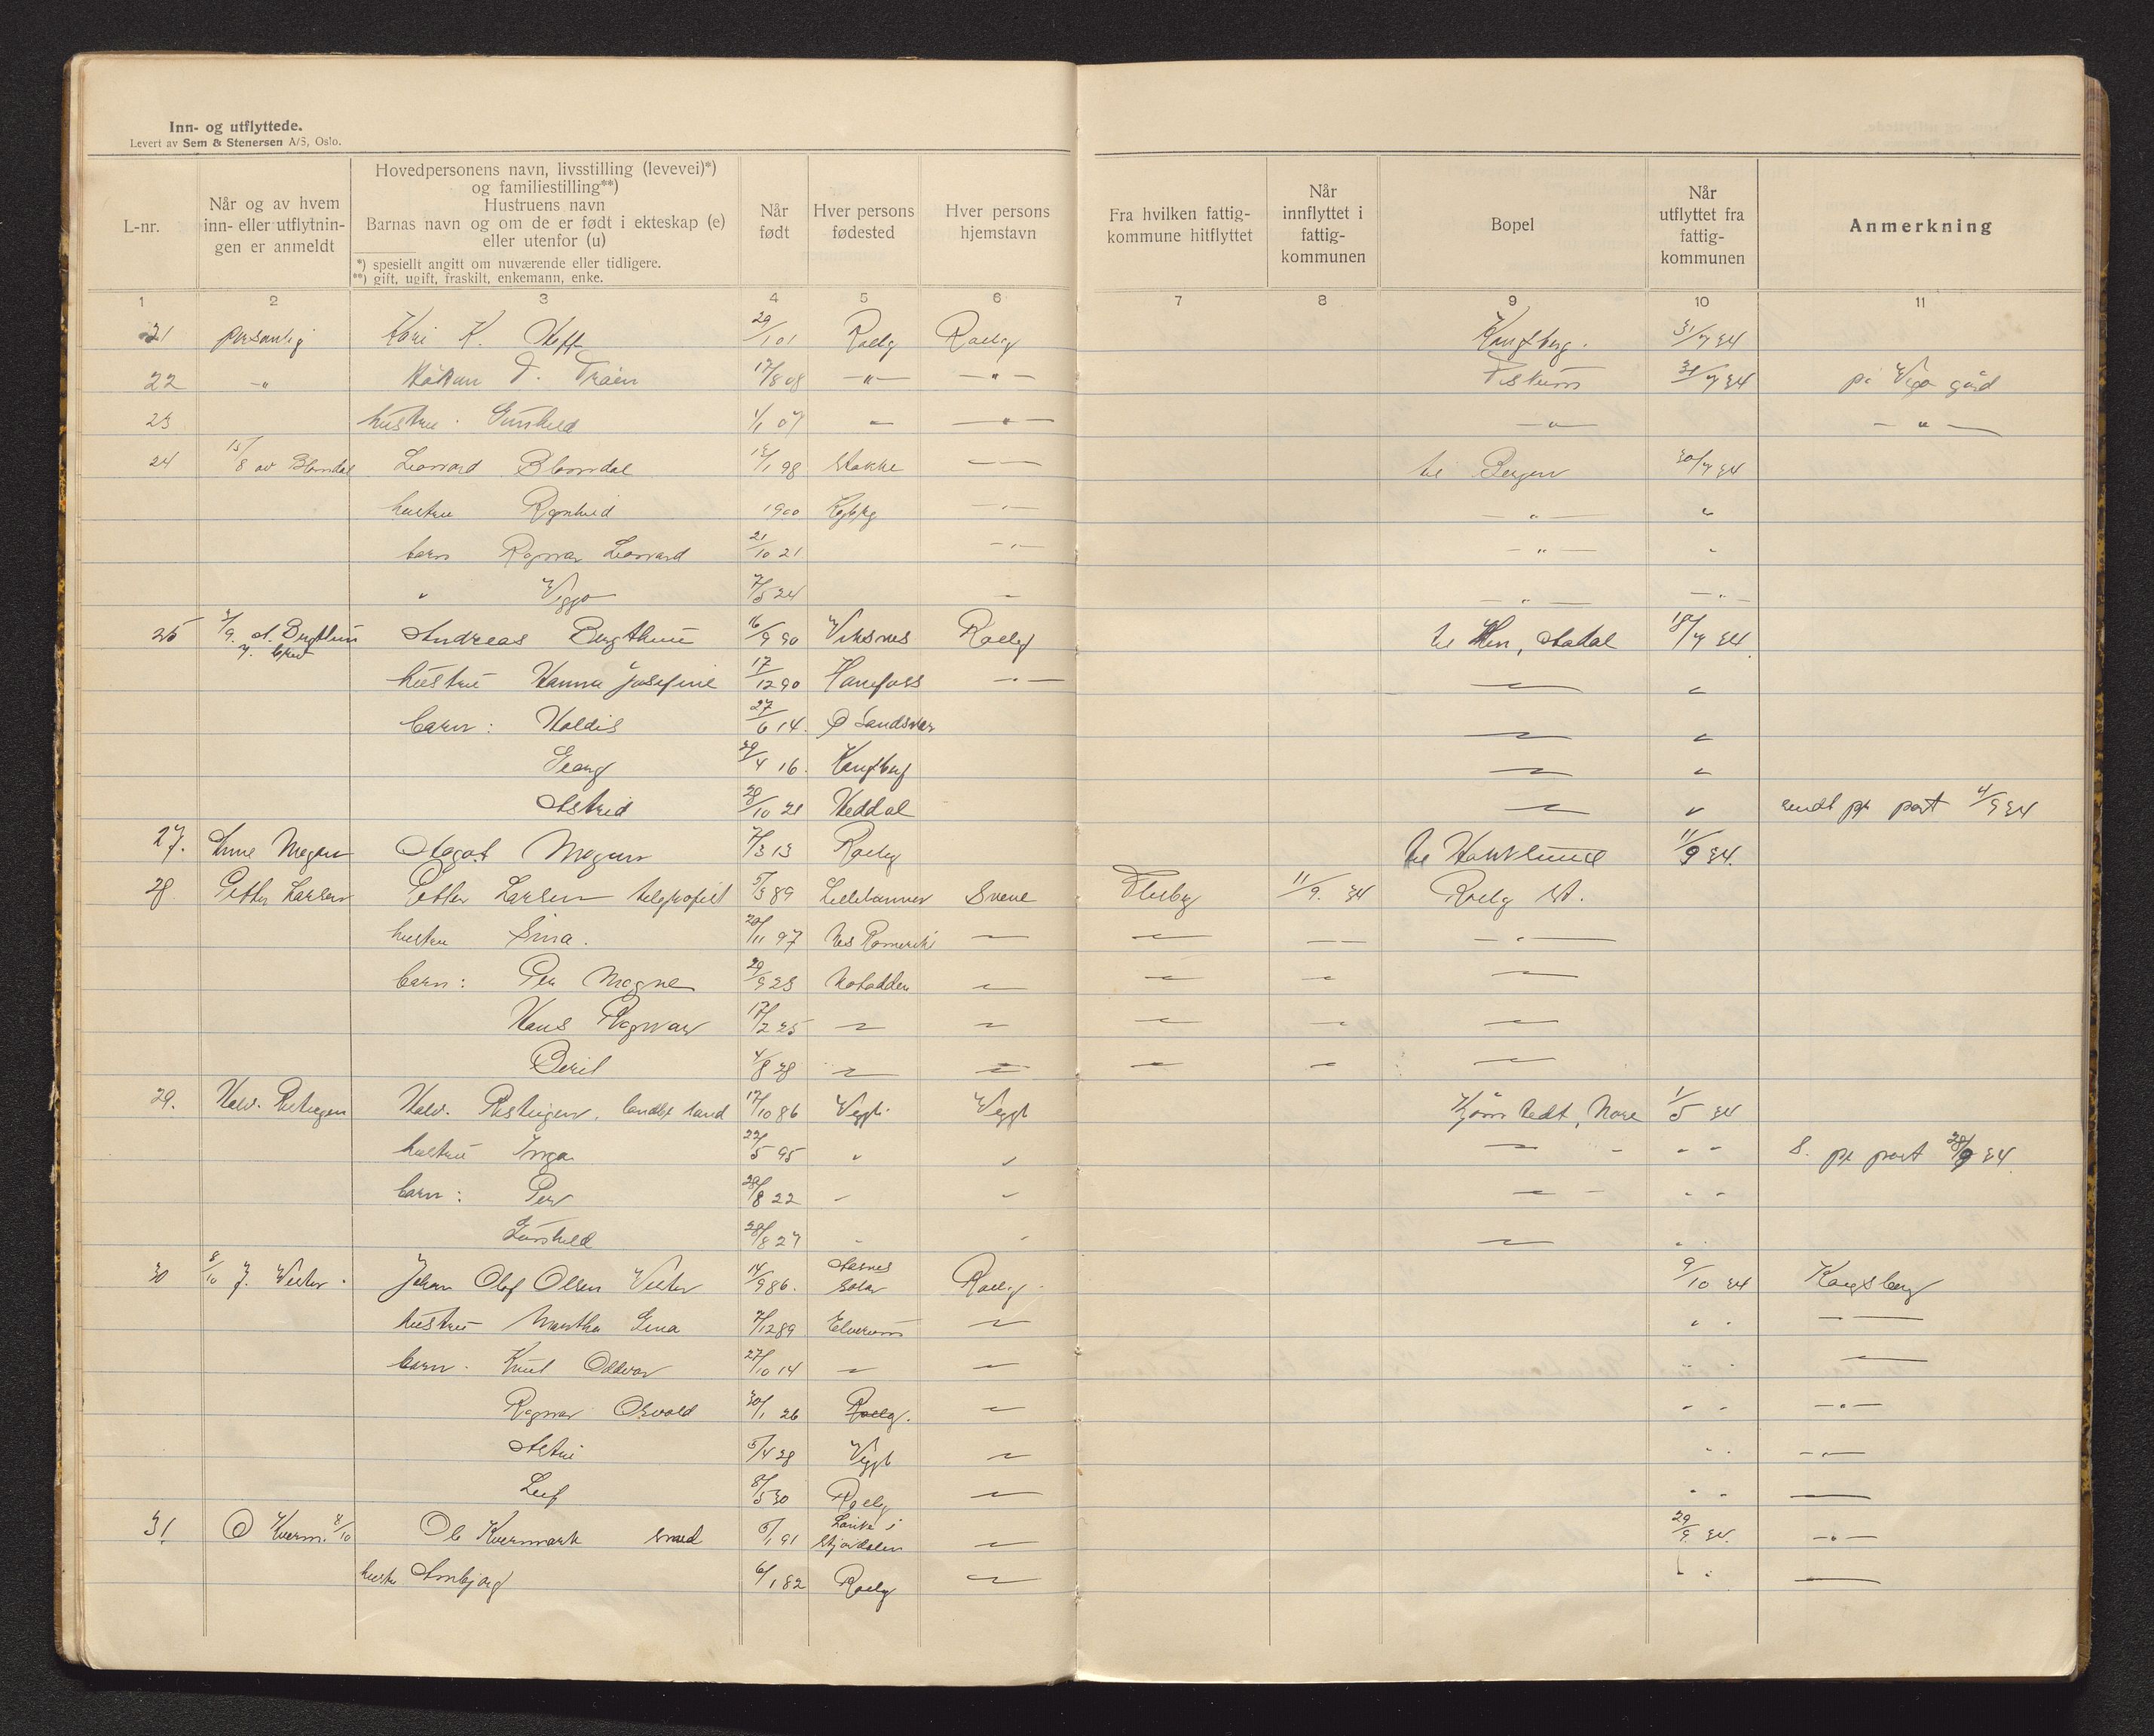 Inn- og utflyttede.
Levert av Sem & Stenersen A/S, Oslo.
L-nr.
Når og av hvem inn- eller utflytnin-gen er anmeldt
Hovedpersonens navn, livsstilling (levevei)*)
og familiestilling**)
Hustruens navn
Barnas navn og om de er født i ekteskap (e)
eller utenfor (u)
*) spesiellt angitt om nuværende eller tidligere.
**) gift, ugift, fraskilt, enkemann, enke.
Når født
Hver persons fødested
Hver persons hjemstavn
Fra hvilken fattig-kommune hitflyttet
Når innflyttet i fattig-kommunen
Bopel
Når utflyttet fra fattig-kommunen
Anmerkning
1 2 3 4 5 6 7 8 9 10 11
21 personlig Kari K. 29/1 01 Rollag Rollag Kongsberg. 31/7 34
22 -"- Håkon T. Tråen 17/8 08 -"- -"- Fiskum 31/7 34 på gård
23 hustru Gunhild 1/1 07 - -"- -"- -"-
24 15/8 av Blomdal Leonard Blomdal 12/1 98 Stokke -- til Bergen 30/7 34
hustru Ragnhild 1900 Kgbrg -"- -"- "
barn Ragnar Leonard 21/10 21 -"- -"- "
" Viggo 7/5 24 - -"- -"-
25 3/9. A. Bergthun Andreas Bergthun 16/9 90 Viksnes Rollag til Hen, Aadal 18/7 34.
hustru Hanna Josefine 17/12 90 Hønefoss -"- - "
barn: Haldis 27/6 14. Ø Sandsvær - "
Georg 29/4 16. Kongsberg - "
Astrid 28/10 21 Heddal - " sendt pr post 4/9 34
27. Anne Mogan Aagot Mogan 7/3 13 Rollag til Hokksund 11/9 34.
28 Petter Larsen Petter Larsen telegrafist 5/3 89 Lillehammer Svene Flesberg 11/9. 34 Rollag st.
hustru Lina. 20/11 97 Nes Romerike - - -- -"-
barn: Per Magne 29/9 23 Notodden - - - -
Hans Ragnar 17/2 25 - - - - -
Beril 4/8 28 - - - - -
29. Halv. Halv. 17/10 86 Veggli Veggli Nore 1/5 34
hustru Inga 22/5 95 " " - " " S. pr post 28/9 34.
barn: Per 28/8 22 - - - " "
Gunhild 28/8 27 - - - "
30 8/10 J. Vester. Johan Olaf Olsen Vester 14/9 86. Aasnes Solør Rollag 9/10 34 Kongsberg
hustru Martha Gina 7/12 89 Elverum - " " -
barn. Knut Oddvar 27/10 14 - - " " -
Ragnar Osvald 30/1 26 Rollag. - " " -"-
5/4 28 Veggli - " " -"-
Leif 8/5 30 Rollag - " " -
31 O Kverm. 8/10 Ole Kvermark smed 5/1 91 Lånke i Stjørdalen - 29/9. 34. -"-
hustru Arnbjørg 6/1 82 Rollag - " " -